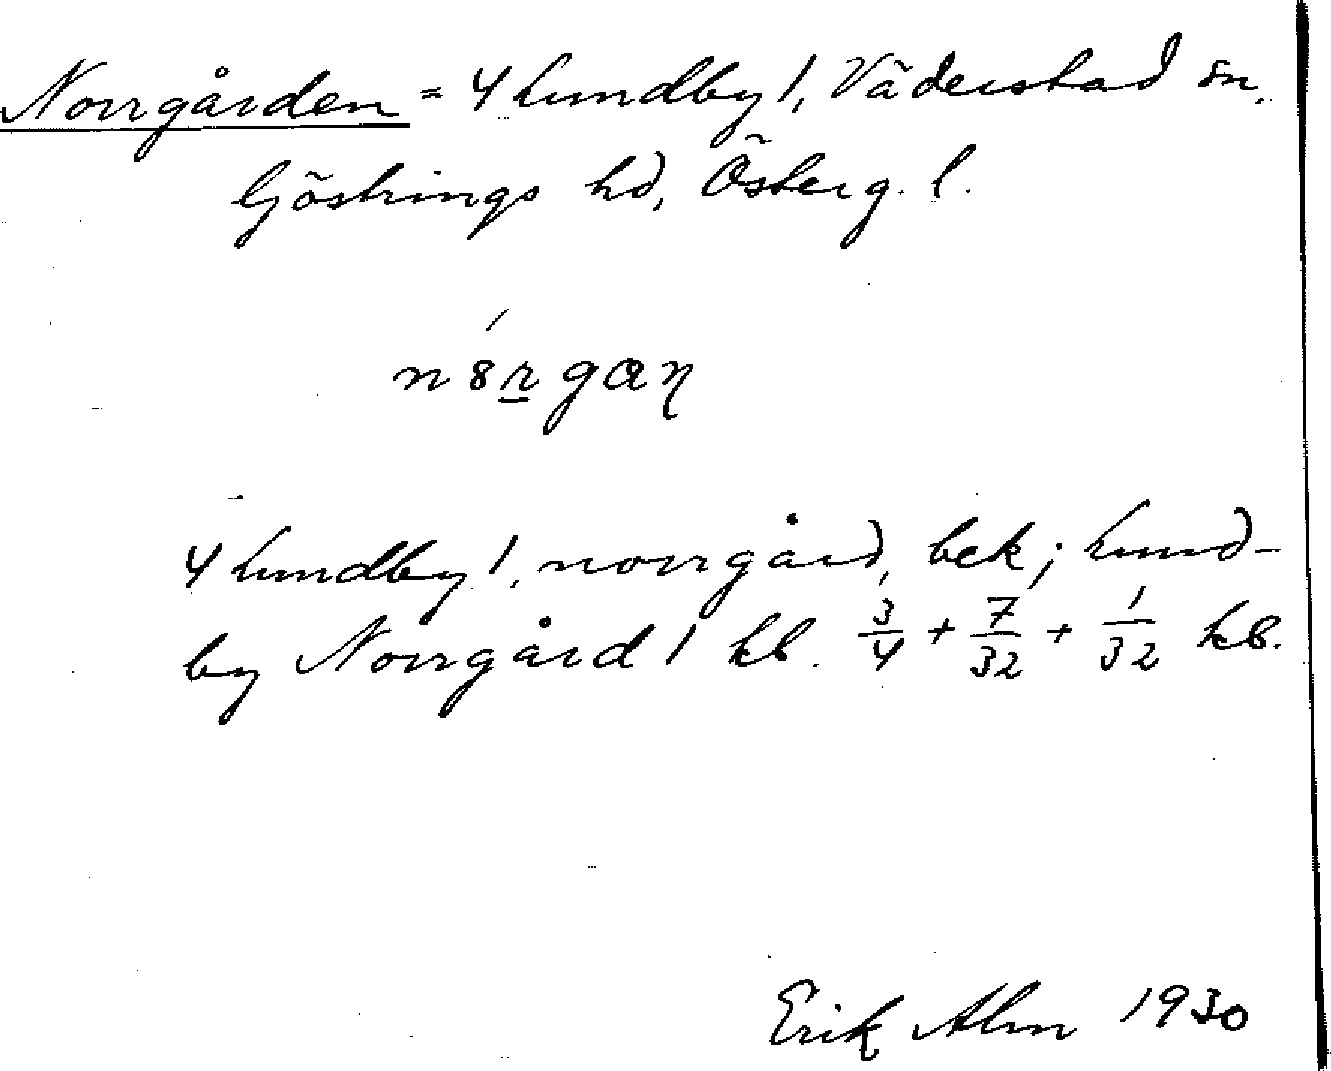 Norrgården = 4 Lundby 1, Väderstad sn,
Göstrings hd, Österg. l.
n8rgaɳ
4 Lundby 1, norrgård, bek; Lund-
by Norrgård 1 kb. 3/4 + 7/32 + 1/32 kb.
Erik Alm 1930